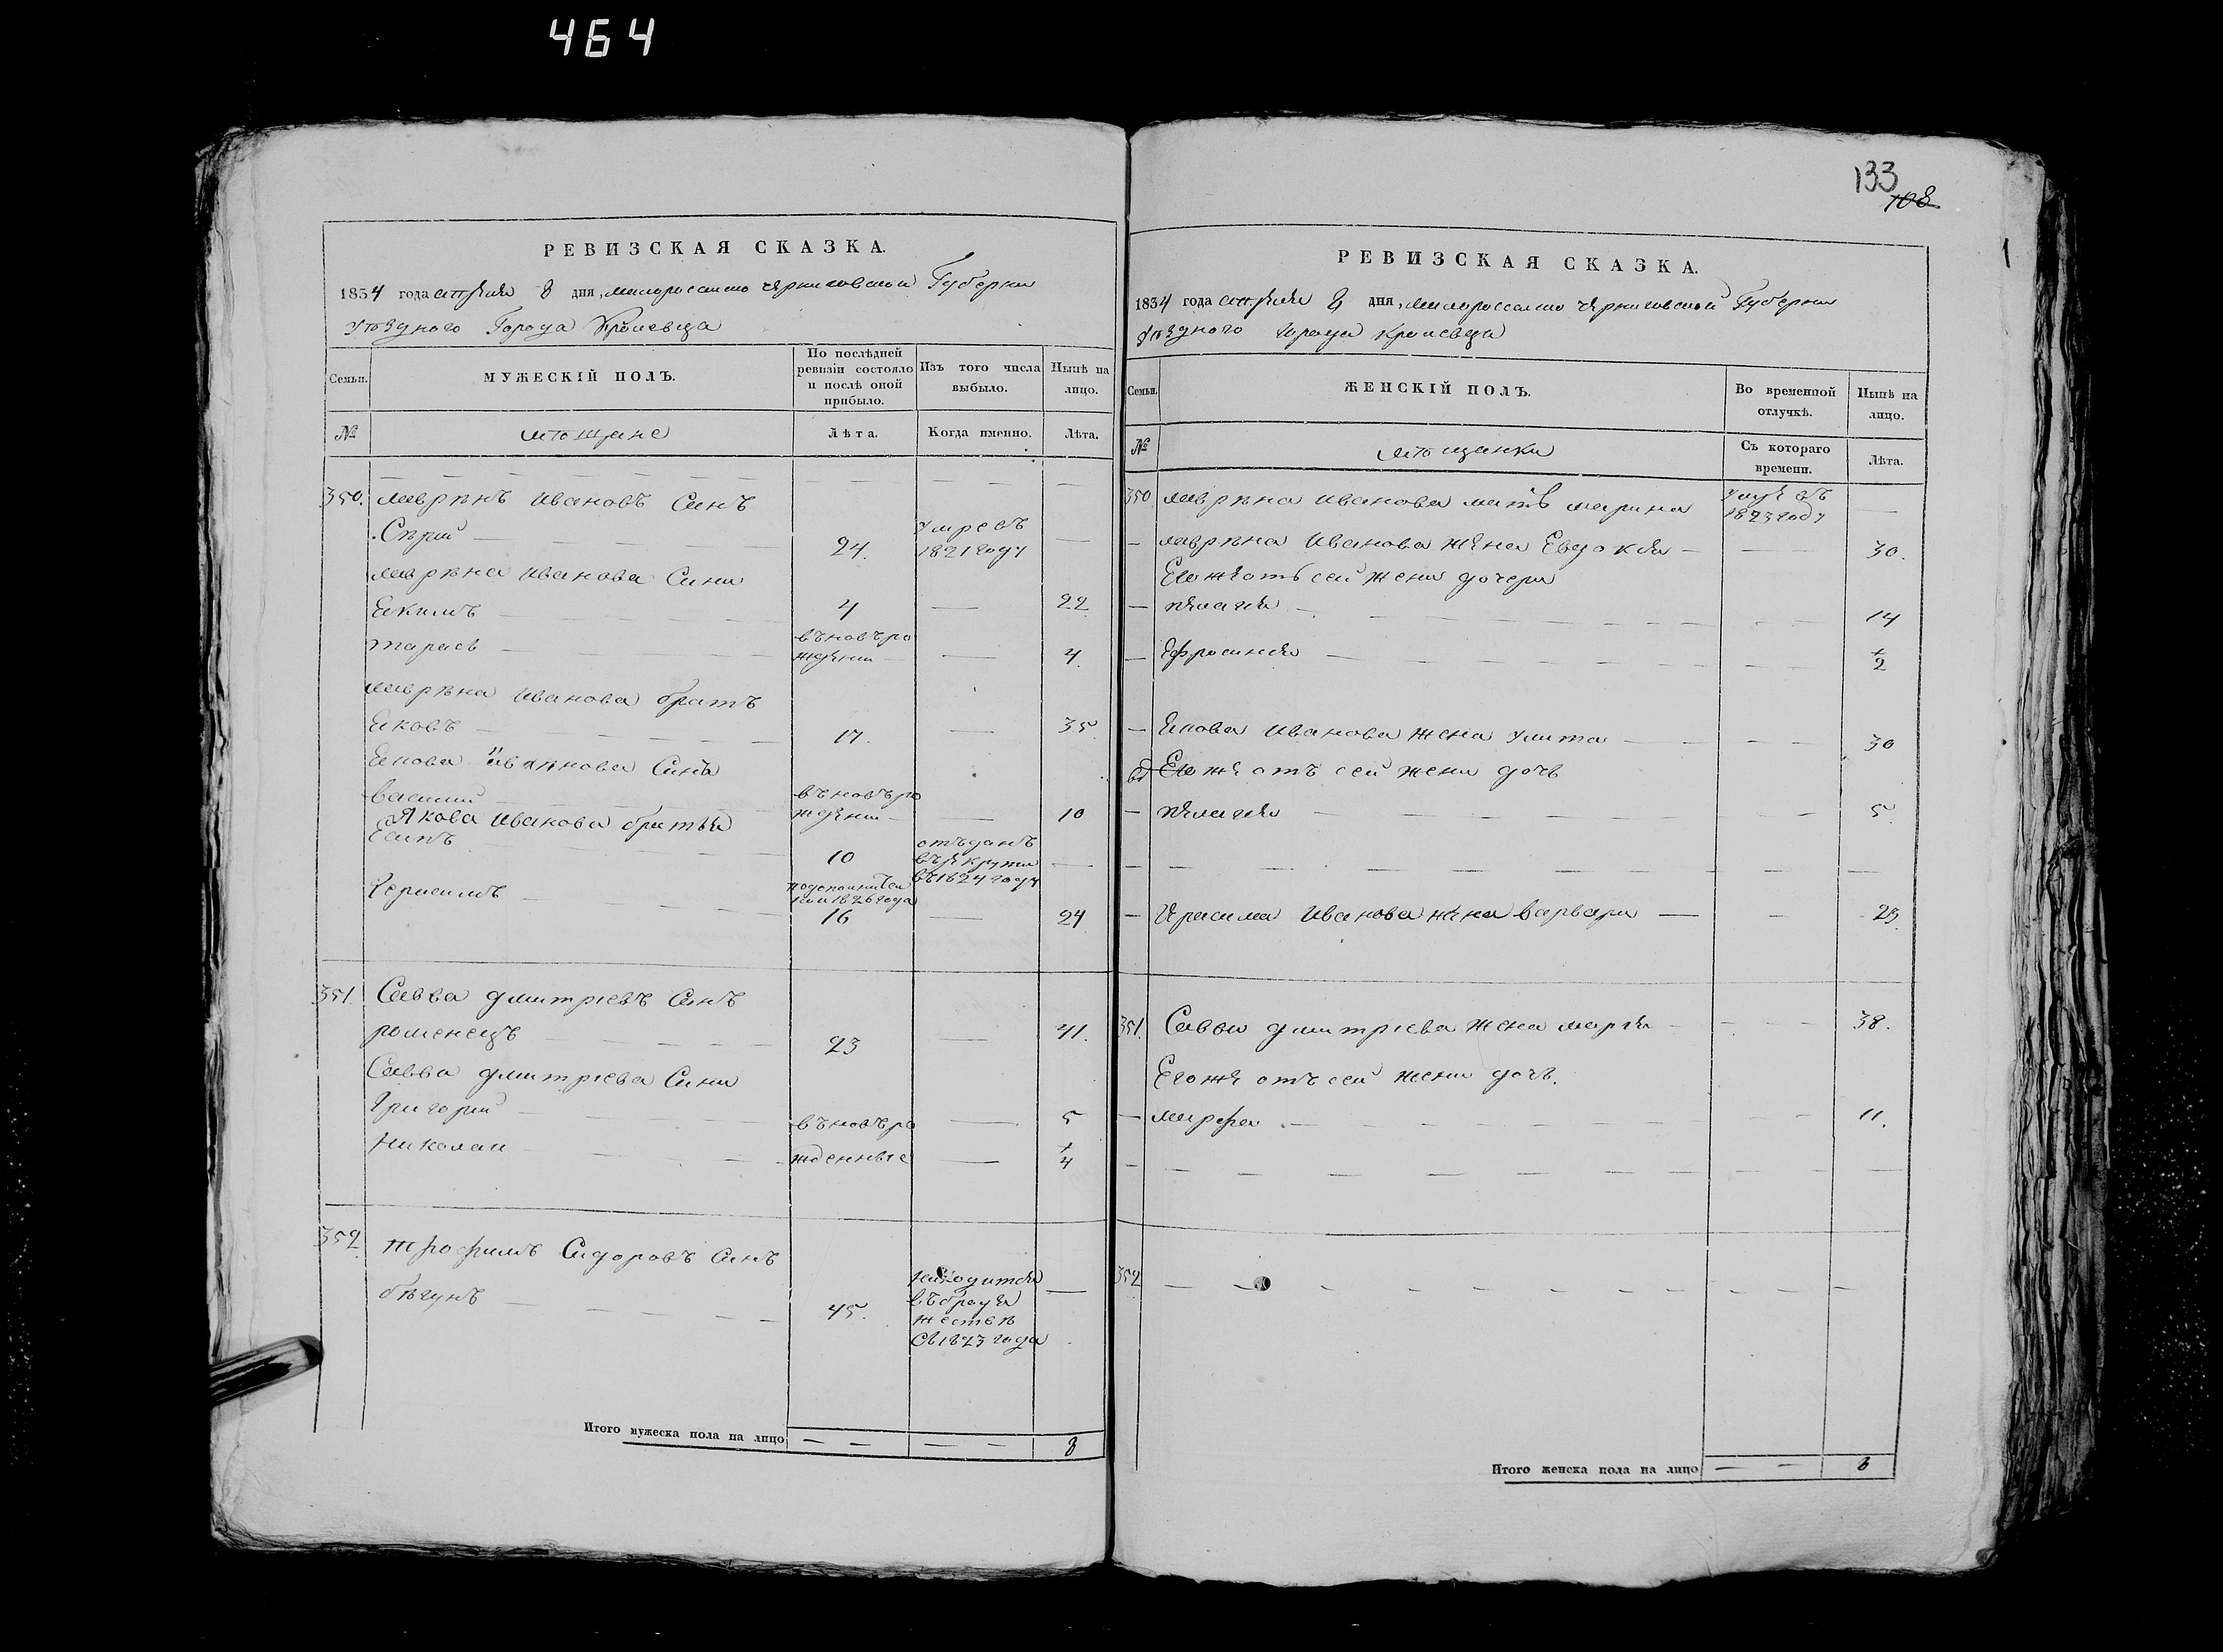 464
133
108
РЕВИЗСКАЯ СКАЗКА.
1834 года апреля 8 дня, малороссийско черниговской Губерни
уѣзднаго Города Кролевца
Семьи.
МУЖЕСКІЙ ПОЛЪ.
По послѣдней ревизіи состояло и послѣ оной прибыло.
Изъ того числа выбыло.
Нынѣ на лицо.
№
мѣщане
Лѣта.
Когда именно.
Лѣта.
350. Лаврѣнъ Ивановъ Синъ
Сѣрий 24. умре въ 1821 году
Лаврѣна Иванова Сини
Екимъ 4 22
тарасъ въновъро ждении 4
Лаврѣна Иванова братъ
Яковъ 17. 35
Якова Иванова Синъ
василий въновъро ждении 10
Якова Иванова братья
Есипъ 10 отъданъ въ рекрути въ 1824 году
Герасимъ 1826 года 16 24
351. Савва дмитріевъ Синъ
роменецъ 23 41.
Савва дмитріева Сини
Григорий въновъро 5
Николай жденные 1/4
352 трофимъ Сидоровъ Синъ
бѣгунъ 45. находится въ бродяжествѣ съ 1823 года
Итого мужеска пола на лицо 8
РЕВИЗСКАЯ СКАЗКА.
1834 года апреля 8 дня, малороссийско черниговской Губерни
уѣзднаго города кролевца
Семьи.
ЖЕНСКІЙ ПОЛЪ.
Во временной отлучкѣ.
Нынѣ на лицо.
№
мѣщанки
Съ котораго времени.
Лѣта.
350 Лаврѣна Иванова мать марина умре въ 1823 году
Лаврѣна Иванова жена Евдокия 30.
Его же отъ сей жени дочери
пелагея 14
Ефросиния 1/2
Якова Иванова жена улита 30
Его же отъ сей жени дочь
пелагея 5
Герасима Иванова жена варвара 23.
351. Савви дмитріева жена мария 38.
Его же отъ сей жени дочь.
марфа 11.
352
Итого женска пола на лицо 8